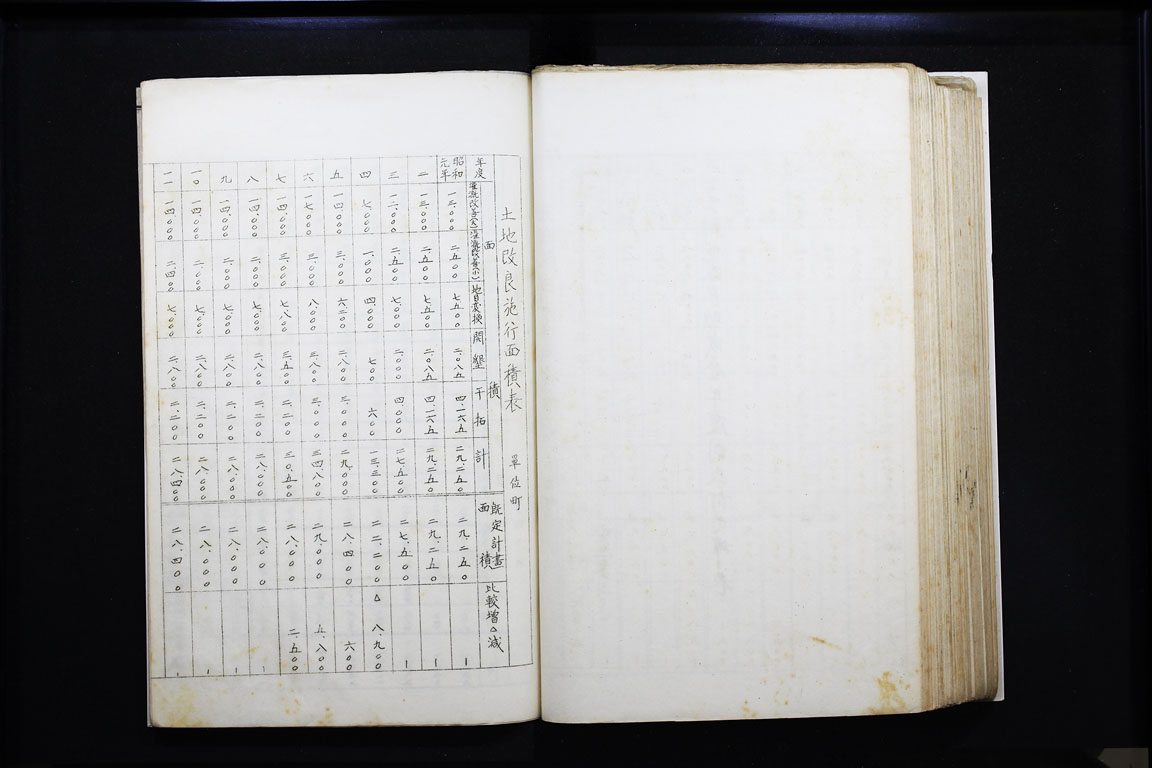 土地改良施行面積表 單位町
年度 面積 灌漑改善(大) 灌漑改善(小) 地目変換 開墾 干拓 計 既定計畫面積 比較増△減
昭和元年 一三.〇〇〇 二.五〇〇 七.五〇〇 二.〇八五 四.一六五 二九.二五〇 二九.二五〇 |
二 一三.〇〇〇 二.五〇〇 七.五〇〇 二.〇八五 四.一六五 二九.二五〇 二九.二五〇 |
三 一二.〇〇〇 二.五〇〇 七.〇〇〇 二.〇〇〇 四.〇〇〇 二七.五〇〇 二七.五〇〇 |
四 七.〇〇〇 一.〇〇〇 四.〇〇〇 七〇〇 六〇〇 一三.三〇〇 二二.二〇〇 △八.九〇〇
五 一四.〇〇〇 三.〇〇〇 六.二〇〇 二.八〇〇 三.〇〇〇 二九.〇〇〇 二八.四〇〇 六〇〇
六 一七.〇〇〇 三.〇〇〇 八.〇〇〇 三.八〇〇 三.〇〇〇 三四.八〇〇 二九.〇〇〇 五.八〇〇
七 一四.〇〇〇 三.〇〇〇 七.八〇〇 三.五〇〇 二.二〇〇 三〇.五〇〇 二八.〇〇〇 二.五〇〇
八 一四.〇〇〇 二.〇〇〇 七.〇〇〇 二.八〇〇 二.二〇〇 二八.〇〇〇 二八.〇〇〇 |
九 一四.〇〇〇 二.〇〇〇 七.〇〇〇 二.八〇〇 二.二〇〇 二八.〇〇〇 二八.〇〇〇 |
一〇 一四.〇〇〇 二.〇〇〇 七.〇〇〇 二.八〇〇 二.二〇〇 二八.〇〇〇 二八.〇〇〇 |
一一 一四.〇〇〇 二.四〇〇 七.〇〇〇 二.八〇〇 二.二〇〇 二八.四〇〇 二八.四〇〇 |